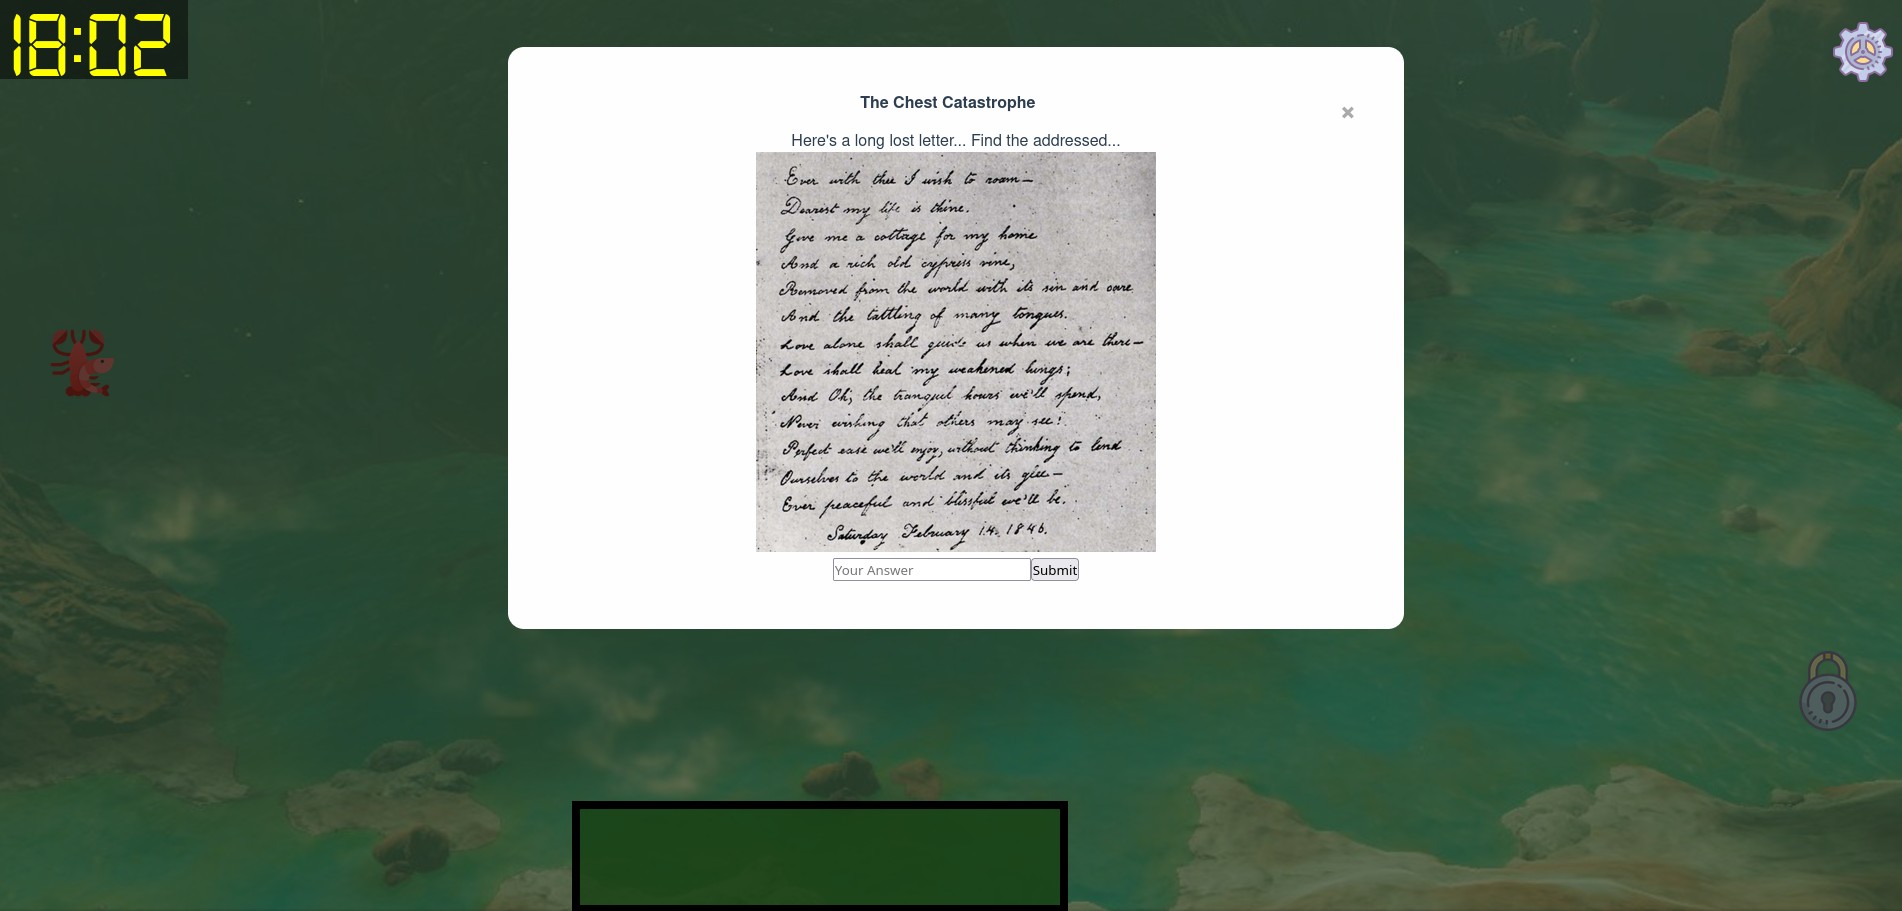 18:02
The Chest Catastrophe
×
Here's a long lost letter... Find the addressed...
Ever with thee I wish to roam—
Dearest my life is thine.
Give me a cottage for my home
And a rich old cypress vine,
Removed from the world with its sin and care
And the tattling of many tongues.
Love alone shall guide us when we are there—
Love shall heal my weakened lungs;
And Oh, the tranquil hours we'll spend,
Never wishing that others may see!
Perfect ease we'll enjoy, without thinking to lend
Ourselves to the world and its glee—
Ever peaceful and blissful we'll be.
Saturday February 14. 1846.
Your Answer Submit